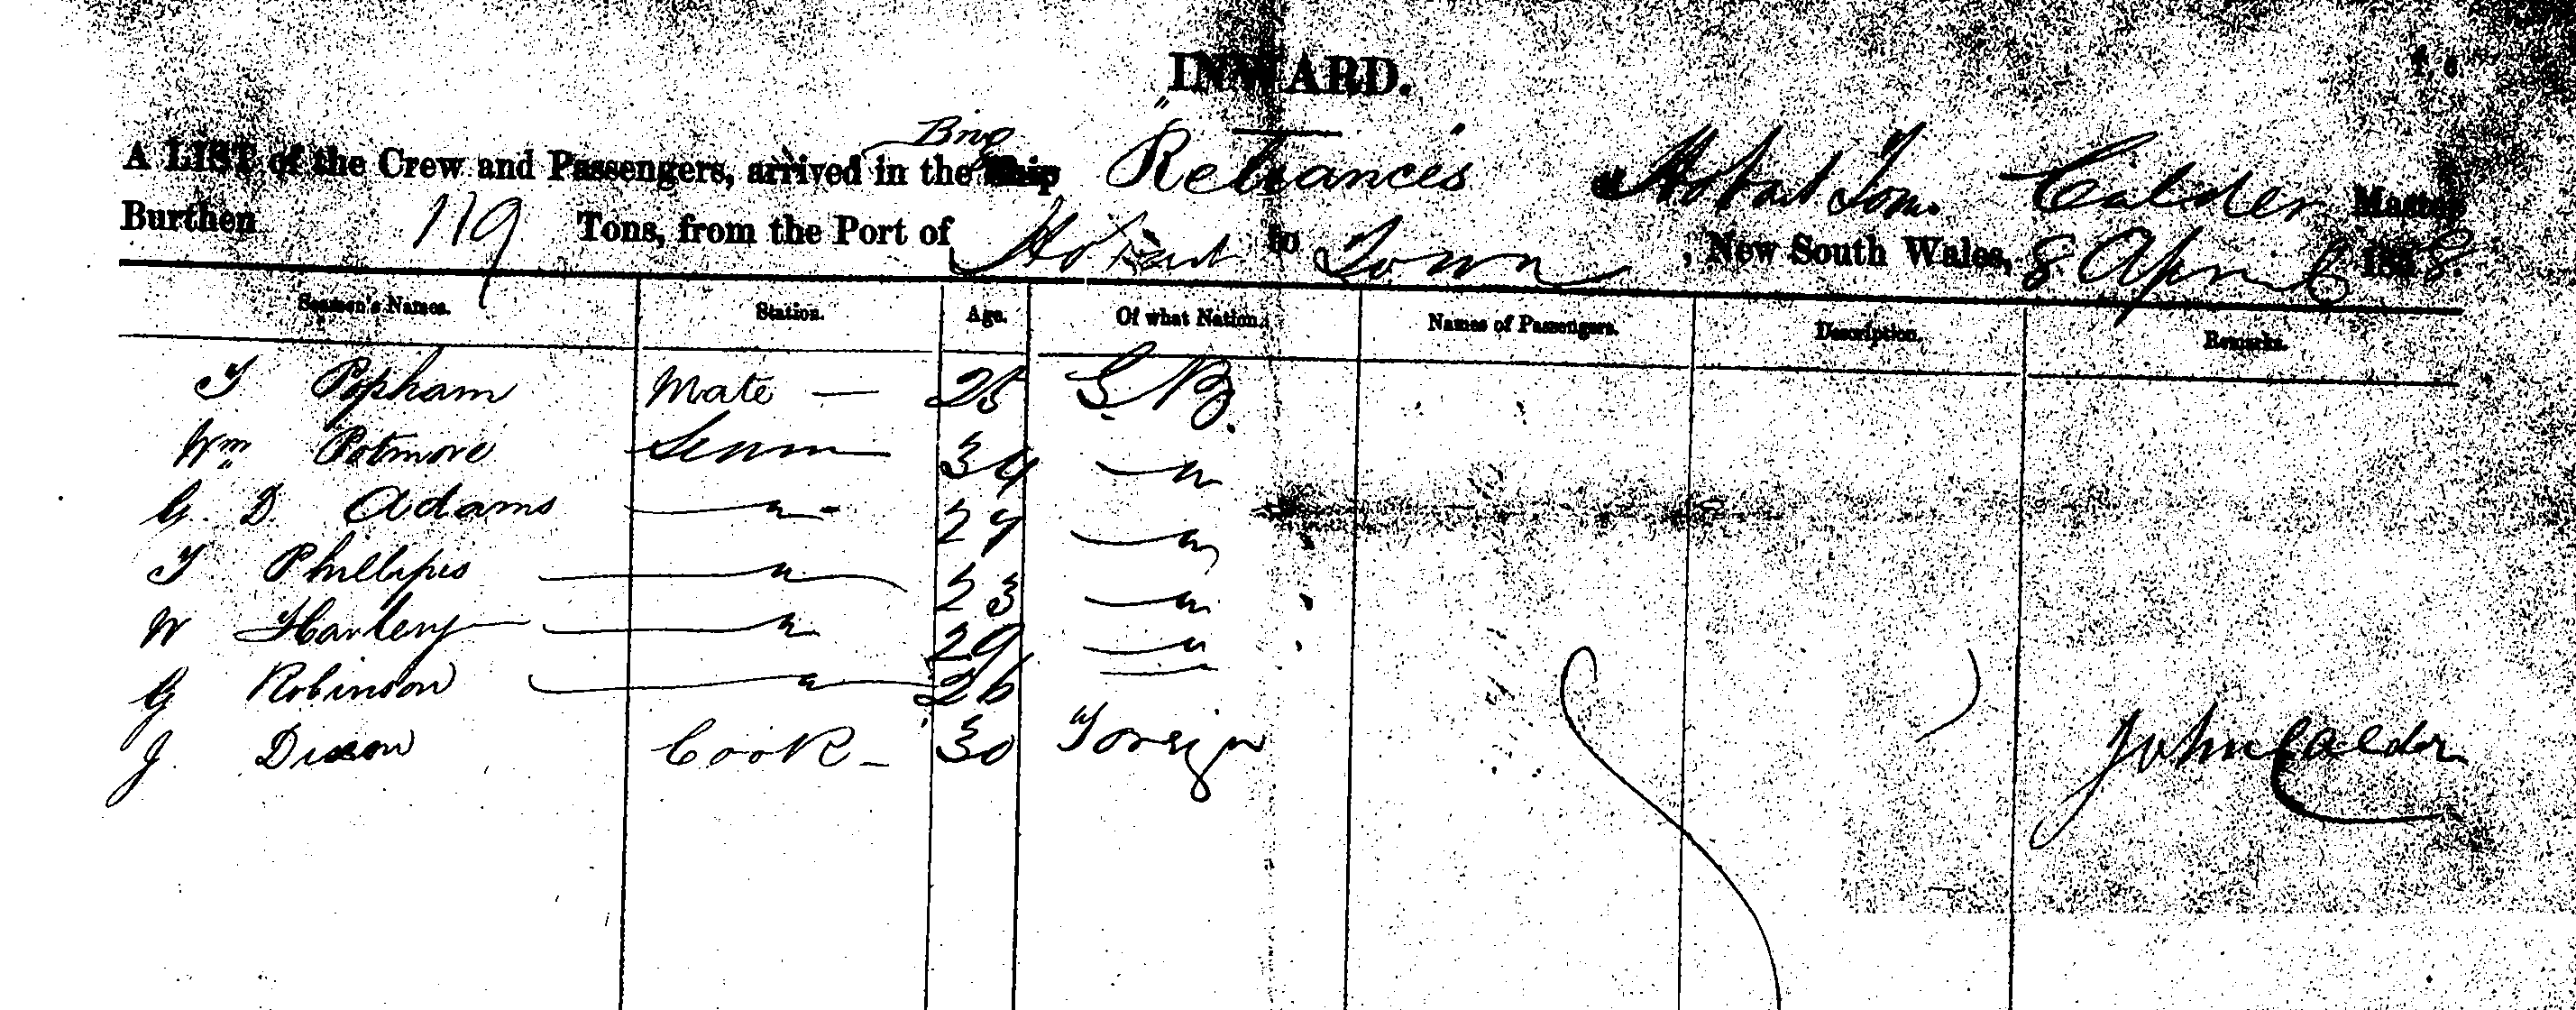 INWARD.
A LIST of the Crew and Passengers, arrived in the Ship Brig "Reliance" of Hobart Town Calder Master
Burthen 119 Tons, from the Port of Hobart to Town, New South Wales, 8 April 1858.
Seamen's Names. Station. Age. Of what Nation. Names of Passengers. Description. Remarks.
T Popham Mate — 25 G.B.
Wm Potmore 34 — "
G. D. Adams — " — 24 — "
T Phillips — " — 23 — "
W Hartley — " — 29 — "
G Robinson — " — 26 —
J. Dixon Cook — 30 Foreign John Calder